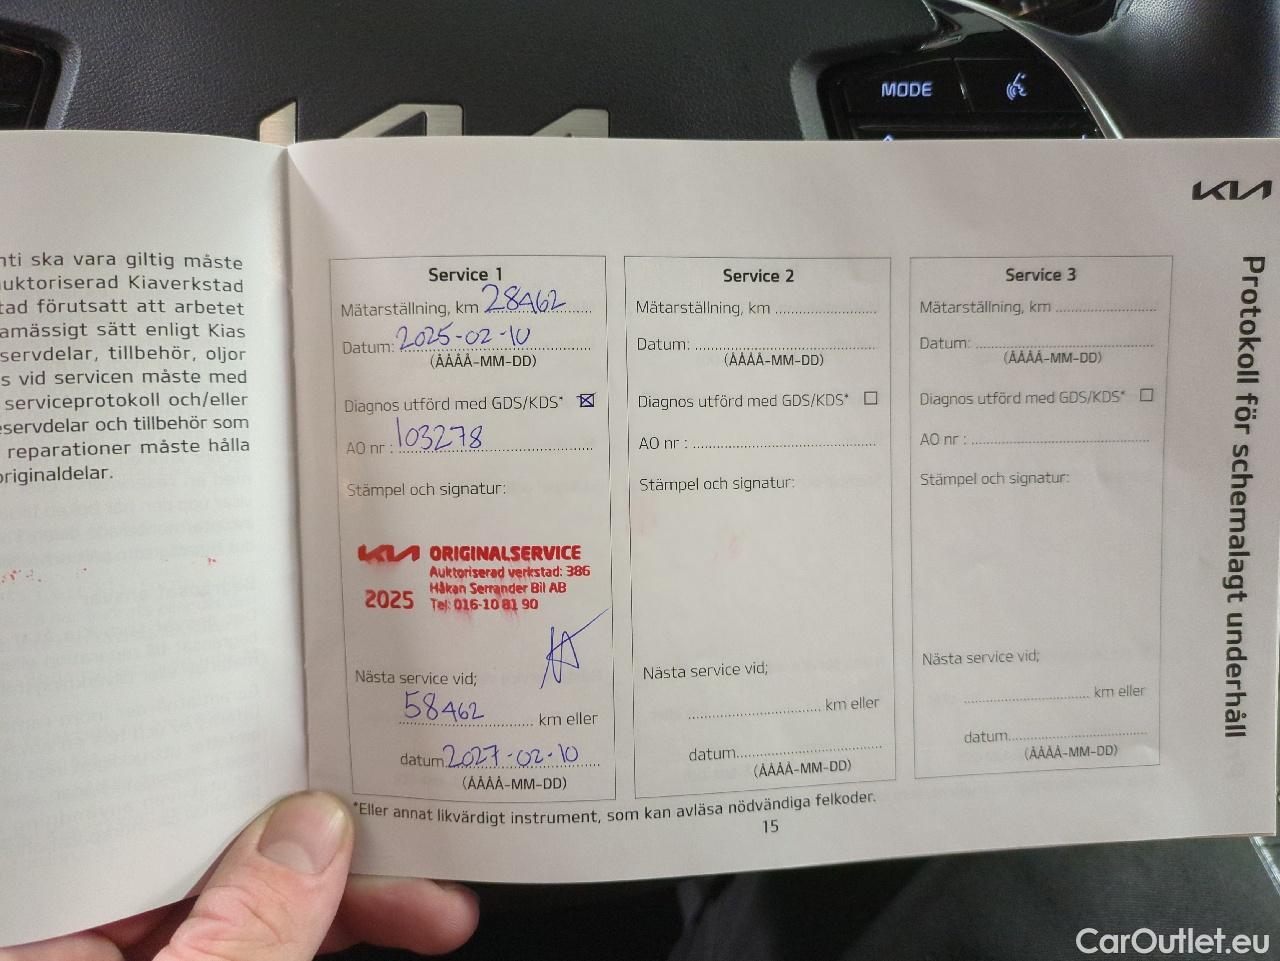 MODE
KIA
nti ska vara giltig måste
auktoriserad Kiaverkstad
tad förutsatt att arbetet
amässigt sätt enligt Kias
servdelar, tillbehör, oljor
s vid servicen måste med
serviceprotokoll och/eller
eservdelar och tillbehör som
reparationer måste hålla
originaldelar.
KIA
Protokoll för schemalagt underhåll
Service 1
Mätarställning, km 28462
Datum: 2025-02-10
(ÅÅÅÅ-MM-DD)
Diagnos utförd med GDS/KDS*
AO nr : 103278
Stämpel och signatur:
KIA ORIGINALSERVICE
Auktoriserad verkstad: 386
Håkan Serrander Bil AB
2025 Tel: 016-10 81 90
Nästa service vid;
58462 km eller
datum 2027-02-10
(ÅÅÅÅ-MM-DD)
Service 2
Mätarställning, km
Datum:
(ÅÅÅÅ-MM-DD)
Diagnos utförd med GDS/KDS*
AO nr :
Stämpel och signatur:
Nästa service vid;
km eller
datum
(ÅÅÅÅ-MM-DD)
Service 3
Mätarställning, km
Datum:
(ÅÅÅÅ-MM-DD)
Diagnos utförd med GDS/KDS*
AO nr :
Stämpel och signatur:
Nästa service vid;
km eller
datum
(ÅÅÅÅ-MM-DD)
*Eller annat likvärdigt instrument, som kan avläsa nödvändiga felkoder.
15
CarOutlet.eu